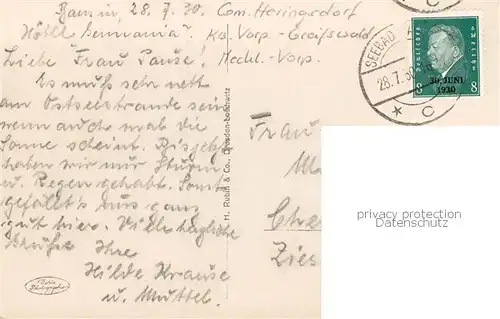 Bansin, 28. 7. 30. Com. Heringsdorf
Hotel Germania". Krs Vorp - Greifswald
Meckl. - Vorp.
Liebe Frau Pause!
Es muß sehr nett
am Ostseestrande sein
wenn auch mal die
Sonne scheint. Bis jetzt
haben wir nur Sturm
u. Regen gehabt. Sonst
gefällt's uns ganz
gut hier. Viele herzliche
Grüße Ihre
Hilde Krause
u. Mutter.
H. Rubin & Co., Dresden-Blasewitz
Frau
SEEBAD
28.7.30
* C
C
Deutsches Reich
30. JUNI
1930
8 8
privacy protection
Datenschutz